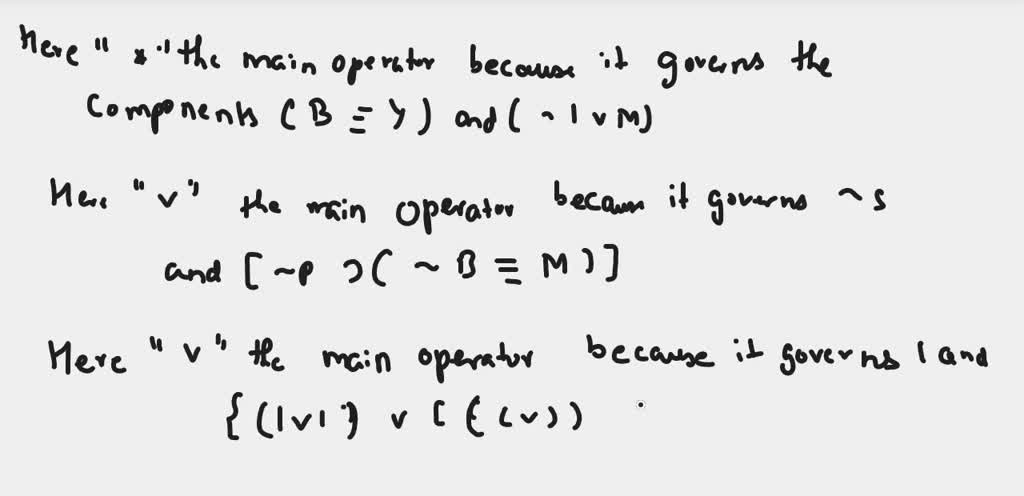 Here "*" the main operator because it governs the
Components (B ≡ Y) and (~ I v M)
Here "v" the main operator becaus it governs ~ S
and [~P ⊃ ( ~ B ≡ M )]
Here "v" the main operator because it governs I and
{(IvI)} v [ ( ( v ) )